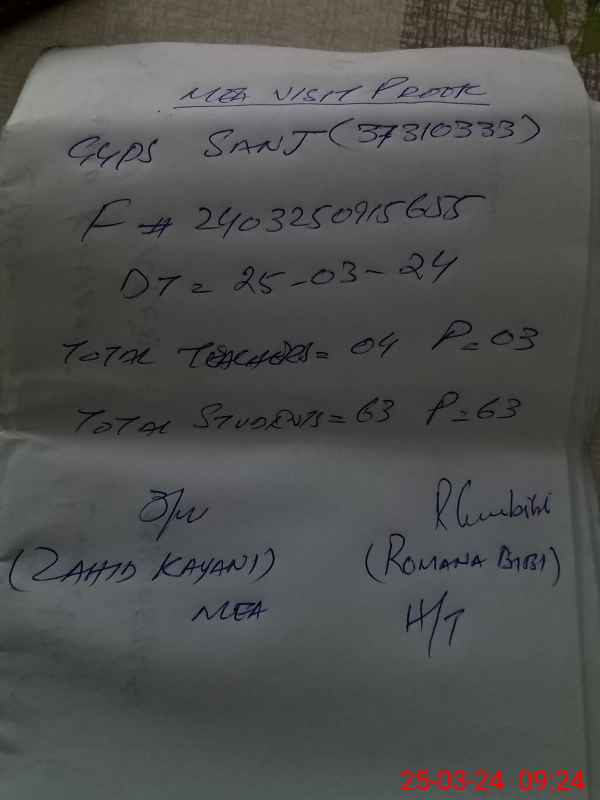 MEA VISIT PROOF
GGPS SANJ (37310333)
F # 2403250915655
DT = 25-03-24
TOTAL TEACHERS = 04 P = 03
TOTAL STUDENTS = 63 P = 63
(ZAHID KAYANI) (ROMANA BIBI)
MEA H/T
25-03-24 09:24